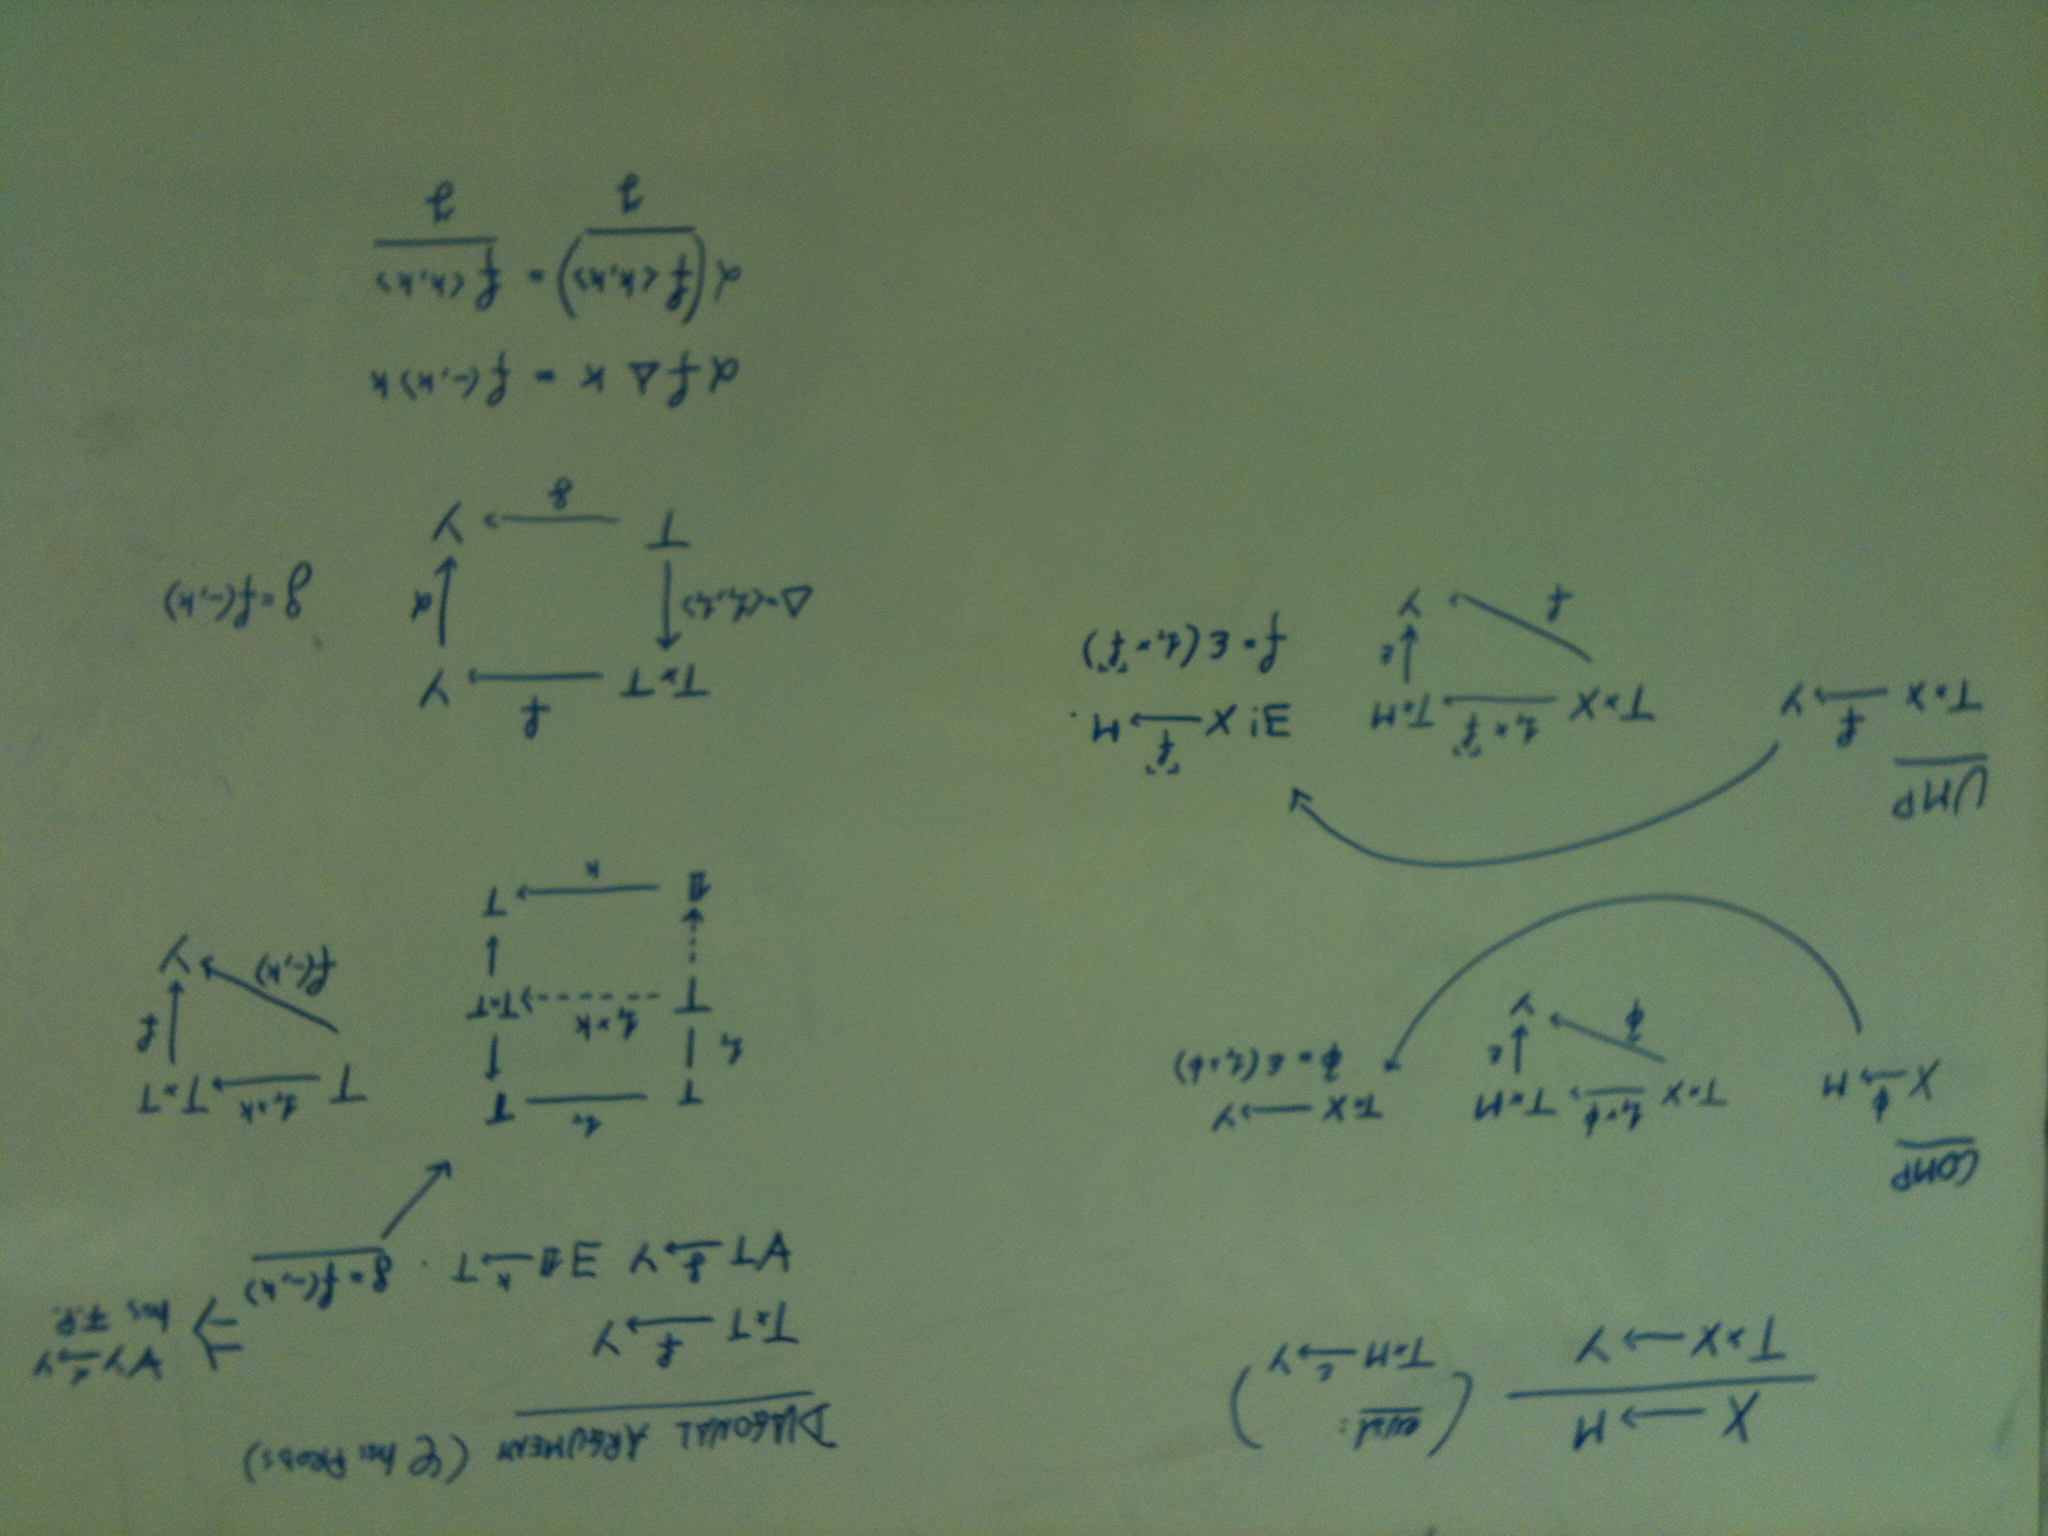 X ⟶ M
T×X ⟶ Y
( eval:
T×M —ε→ Y )
COMP
X —ϕ→ M
T×X —1_T×ϕ→ T×M
↓ ε
ϕ̃
Y
T×X ⟶ Y
ϕ̃ = ε(1_T×ϕ)
UMP
T×X —f→ Y
T×X —1_T×⌜f⌝→ T×M
↓ ε
f
Y
∃! X —⌜f⌝→ M.
f = ε(1_T×⌜f⌝)
DIAGONAL ARGUMENT (𝒞 has PRODS)
T×T —f→ Y
∀T —g→ Y ∃ 𝟙 —k→ T . g = f(-,k)
⇒ ∀Y —α→ Y
has F.P.
T —1_T— T
1_T | ↑
T --1_T×k--> T×T
↓ ↓
𝟙 —k→ T
T —1_T×k→ T×T
↓ f
f(-,k)
Y
T×T —f→ Y
Δ=⟨1_T,1_T⟩ ↑ ↓ α
T —g→ Y
g = f(-,k)
α f Δ k = f(-,k) k
α(f⟨k,k⟩) = f⟨k,k⟩
y y